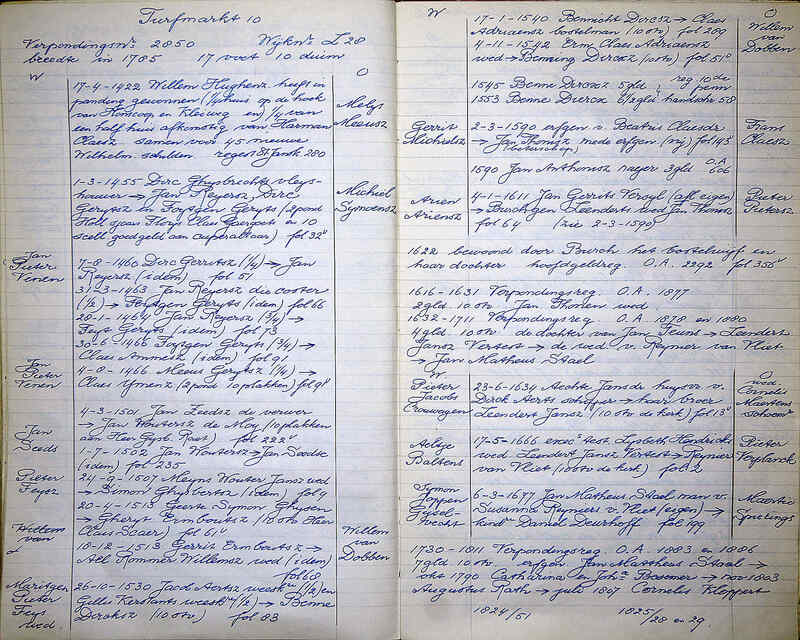 Turfmarkt 10
Verpondingsnr. 2850 Wijknr. L 28
breedte in 1785 17 voet 10 duim
W O
17-4-1422 Willem Hughenz heeft in
panding gewonnen (1/4 huis op de hoek
van Honcoop en Kleiweg en) 1/4 van
een half huis afkomstig van Harman
Claesz samen voor 45 nieuwe
Wilhelm. schilden regest St Jansk 280
Melys
Meeusz
1-3-1455 Dirc Ghysbrechtsz vleys-
houwer → Jan Reyersz Dirc
Gerytsz en Foytgen Geryts (2 pond
Holl. sjaars Floys Claes Geryts en 10
scell. goedgeld aan outaar) fol 32v
Michiel
Symonsz
Jan
Pieter
Vinen
7-8-1460 Dirc Gerritsz (1/4) → Jan
Reyersz (idem) fol 51
31-3-1463 Jan Reyersz die coster
(1/2) → Foytgen Geryts (idem) fol 66
20-1-1464 Jan Reyersz (3/4) →
Feys Geryts (idem) fol 73
30-6-1466 Foytgen Geryts (3/4) →
Claes Ammesz (idem) fol 91
Jan
Pieter
Vinen
4-8-1466 Meeus Gerytsz (1/4) →
Claes Ymenz (2 pond 10 plakken) fol 91v
Jan
Seeds
4-3-1501 Jan Zeedsz de verwer
→ Jan Woutersz de Moy (10 plakken
aan Heer Gysb. Raet) fol 222v
1-7-1502 Jan Woutersz → Jan Seedsz
(idem) fol 235
Pieter
Feysz
24-9-1507 Meyns Wouter Jansz wed
→ Simon Ghysbertsz (idem) fol 9
20-4-1513 Geerte Symon Ghysen
→ Gheryt Ermboutsz (10 stv Heer
Claes Scaer) fol 61v
Willem
van
18-12-1513 Gerrit Ermboutsz →
Ael Rommer Willemsz wed (idem)
fol 68
Willem
van
Dobben
Maritgen
Pieter
Feys
wed.
26-10-1530 Jacob Aertsz (1/2) en
Gillis Kerstants (1/2) → Benne
Dircksz (10 stv.) fol 83
W O
17-1-1540 Bennicht Dircsz → Claes
Adriaensz bostelman (10 stv) fol 209
4-11-1542 Erm Claes Adriaensz
wed → Benning Dircxz (10 stv) fol 51v
Willem
van
Dobben
1545 Benne Dircxz 5 gld reg 10de
1553 Benne Dircxz 6 1/2 gld penn handschr 58
Gerrit
Michielsz
2-3-1590 erfgen v. Beatris Claesdr
→ Jan Thonisz mede erfgen (vrij) fol 145v
Frans
Claesz
1590 Jan Anthonisz nayer 3 gld O.A. 606
Arien
Ariensz
4-1-1611 Jan Gerrits Versyl (afl. eigen)
→ Burchgen Leenderts wed Jan Thonisz
fol 64 (zie 2-3-1590)
Pieter
Pietersz
1622 bewoond door Burch. het bostelwijf en
haar dochter hoofdgeldreg. O.A. 2292 fol 356v
1616-1631 Verpondingsreg. O.A. 1877
2 gld. 10 stv Jan Thonen wed
1632-1711 Verpondingsreg O.A. 1878 en 1880
4 gld. 10 stv de dochter van Jan Teunisz → Leendert
Jansz Vertest → de wed v. Reynier van Vliet
→ Jan Matheus Stael
W O
Pieter
Jacobs
Crouwagen
23-6-1634 Aechte Jans de huysvr v.
Dirck Aerts schipper → haar broer
Leendert Jansz (10 stv de kerk) fol 13v
wed.
Cornelis
Maertens
schoenmr
Aeltje
Baltens
17-5-1666 exec test Lysbeth Hendricks
wed Leendert Jansz Vertest → Reynier
van Vliet (10 stv de kerk) fol 2
Pieter
Verplanck
Symon
Joppen
6-3-1677 Jan Matheus Stael man v.
Susanna Reyniers v. Vliet (eigen) →
kind v Daniel Deurhoff fol 199
Maertie
1730-1811 Verpondingsreg. O.A. 1883 en 1886
7 gld 10 stv erfgen Jan Mattheus Stael →
okt 1790 Catharina en Joha Bosmer → nov 1803
Augustus Rath → julij 1807 Cornelis Kloppert
1824/51 1825/28 en 29.